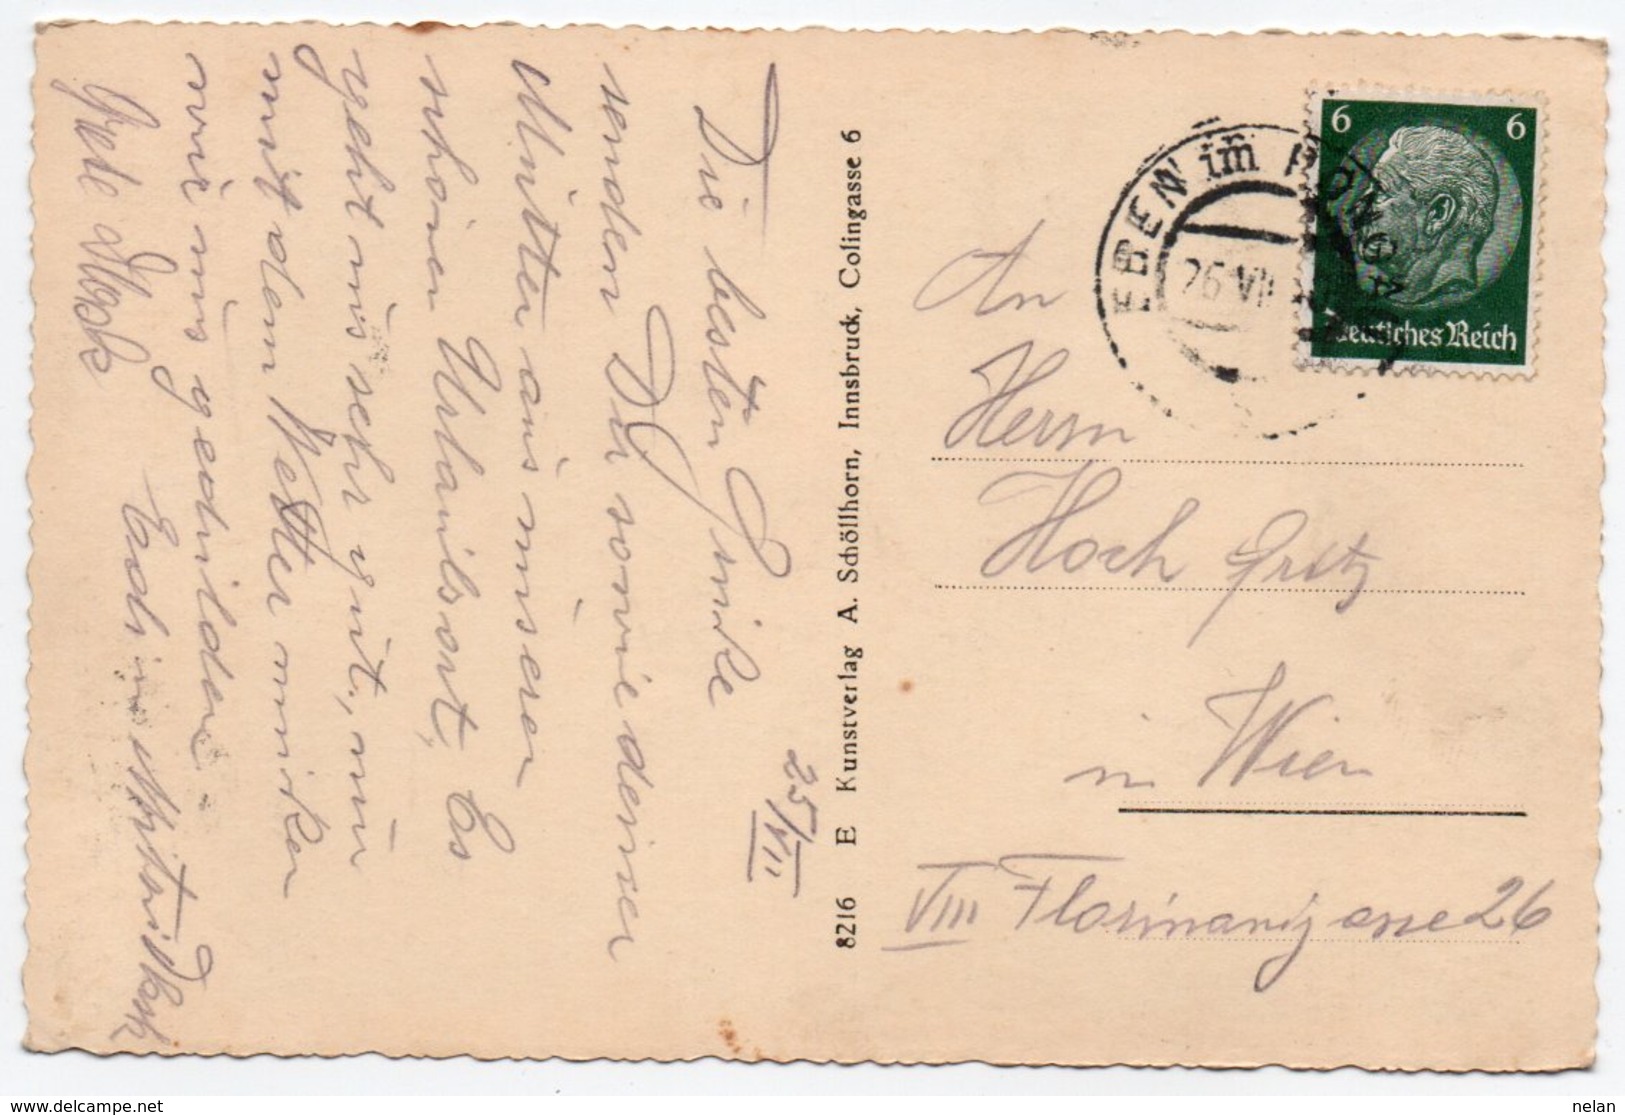 25/VII
Die besten Grüße
senden Dir sowie deiner
Mutter aus unserer
schönen Urlaubsort, Es
geht uns sehr gut, nur
mit dem Wetter müßen
wir uns gedulden
8216 E Kunstverlag A. Schöllhorn, Innsbruck, Colingasse 6
EBEN im PONGAU
26 VII
6 6
Deutsches Reich
An
Herrn
Hoch Fritz
in Wien
VIII Florianigasse 26
www.delcampe.net
nelan